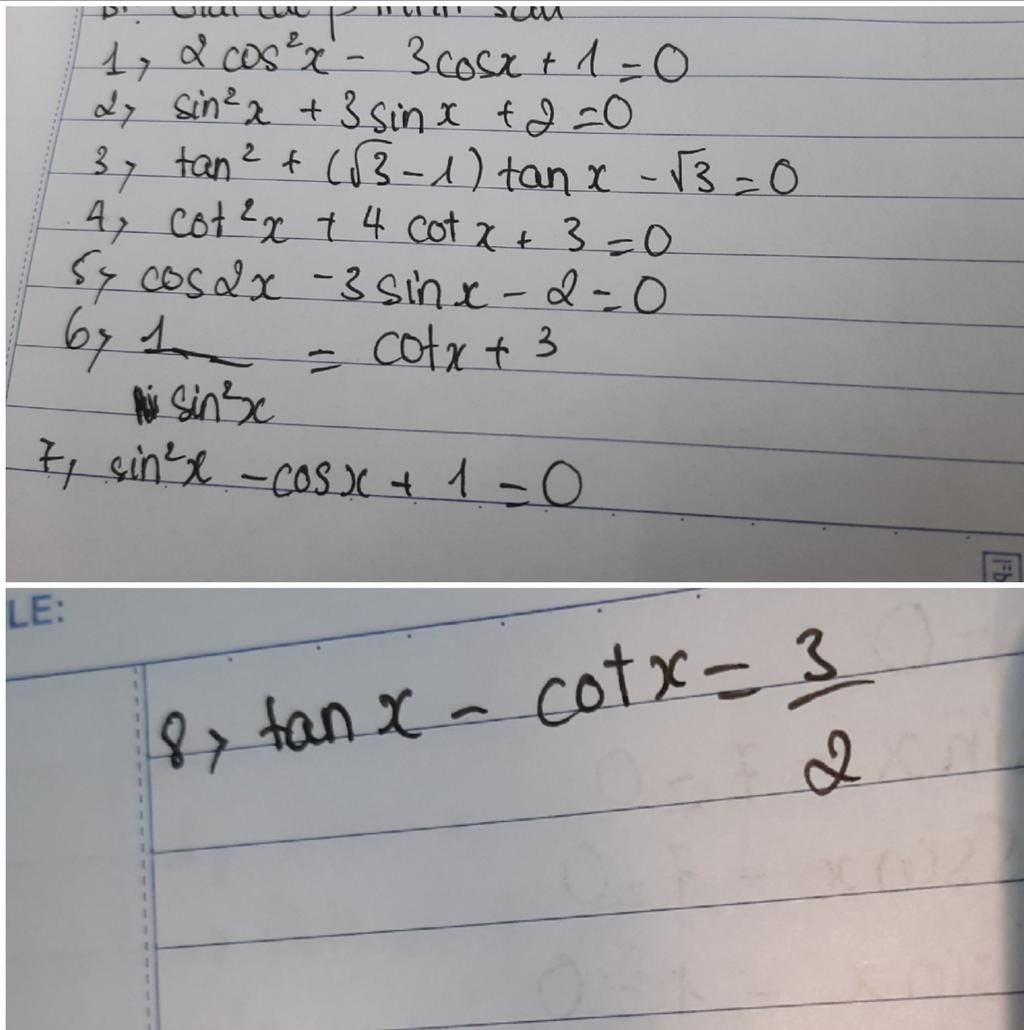 1, 2 cos²x - 3cosx + 1 = 0
2, sin²x + 3sinx + 2 = 0
3, tan² + (√3 - 1) tanx - √3 = 0
4, cot²x + 4 cotx + 3 = 0
5, cos2x - 3sinx - 2 = 0
6, 1/sin²x = cotx + 3
7, sin²x - cosx + 1 = 0
LE:
8, tanx - cotx = 3/2